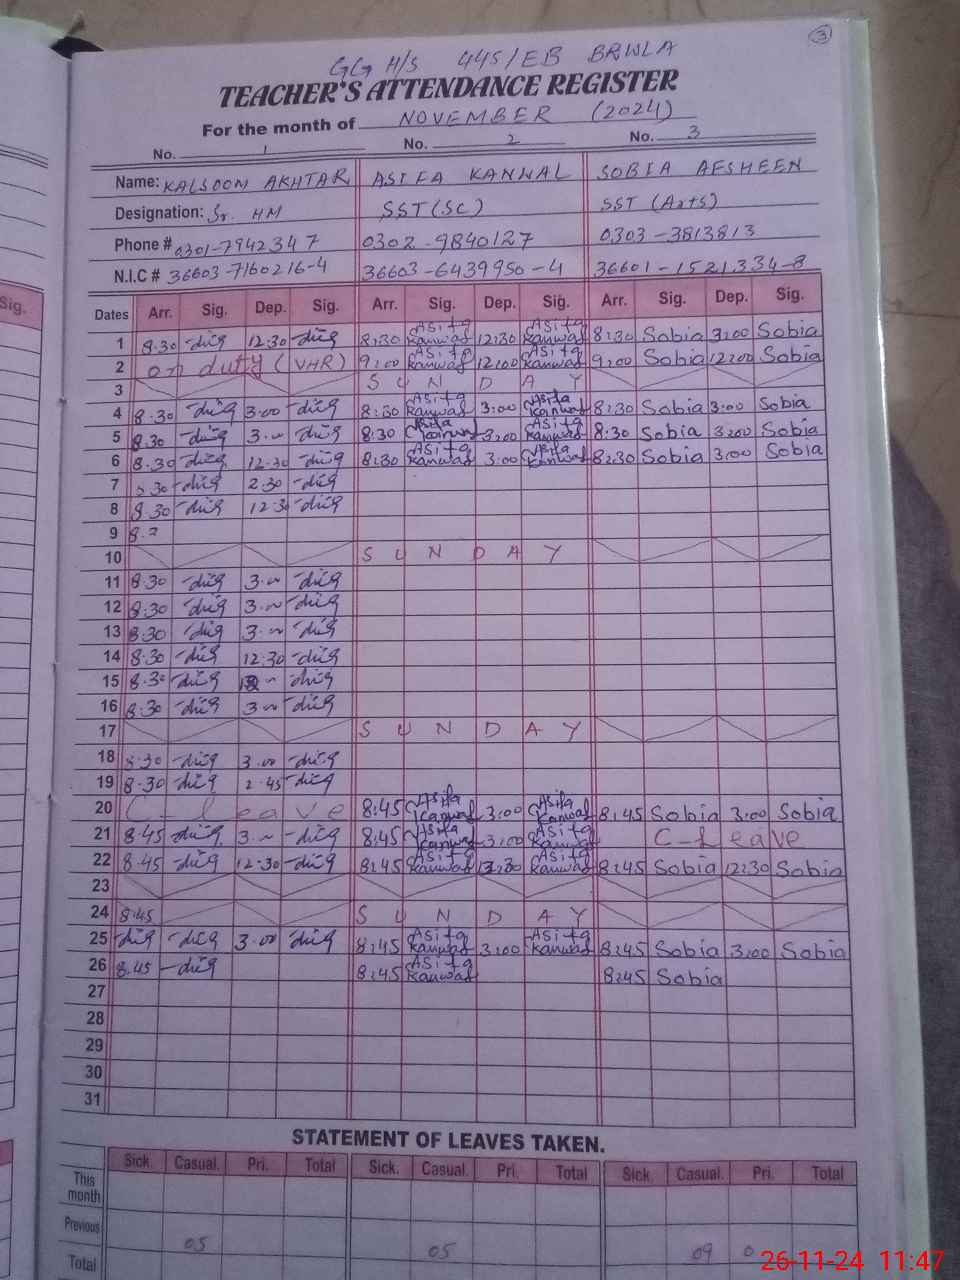 3
GG H/S 445/EB BRWLA
TEACHER'S ATTENDANCE REGISTER
For the month of NOVEMBER (2024)
No. 1 No. 2 No. 3
Name: KALSOOM AKHTAR ASIFA KANWAL SOBIA AFSHEEN
Designation: Sr. HM SST(SC) SST (Arts)
Phone # 0301-7942347 0302-9840127 0303-3813813
N.I.C # 36603-7160216-4 36603-6439950-4 36601-1521334-8
Sig.
Dates Arr. Sig. Dep. Sig. Arr. Sig. Dep. Sig. Arr. Sig. Dep. Sig.
1 8:30 12:30 8:30 Asifa Kanwal 12:30 Asifa Kanwal 8:30 Sobia 3:00 Sobia
2 on duty (VHR) 9:00 Asifa Kanwal 12:00 Asifa Kanwal 9:00 Sobia 12:00 Sobia
3 SUNDAY
4 8.30 3.00 8:30 Asifa Kanwal 3:00 Asifa Kanwal 8:30 Sobia 3:00 Sobia
5 8.30 3.00 8:30 Asifa Kanwal 3:00 Asifa Kanwal 8:30 Sobia 3:00 Sobia
6 8.30 12.30 8:30 Asifa Kanwal 3:00 Asifa Kanwal 8:30 Sobia 3:00 Sobia
7 2.30
8 8.30 12.30
9 8.
10 SUNDAY
11 8.30 3.00
12 8.30 3.00
13 8.30 3.00
14 8.30 12.30
15 8.30
16 8.30 3.00
17 SUNDAY
18 8.30 3.00
19 8.30 2.45
20 C-leave 8:45 Asifa Kanwal 3:00 Asifa Kanwal 8:45 Sobia 3:00 Sobia
21 8.45 3.00 8:45 Asifa Kanwal 3:00 Asifa Kanwal C-Leave
22 8.45 12.30 8:45 Asifa Kanwal Asifa Kanwal 8:45 Sobia 12:30 Sobia
23
24 8.45 SUNDAY
25 3.00 8:45 Asifa Kanwal 3:00 Asifa Kanwal 8:45 Sobia 3:00 Sobia
26 8.45 8:45 Asifa Kanwal 8:45 Sobia
27
28
29
30
31
STATEMENT OF LEAVES TAKEN.
Sick. Casual. Pri. Total Sick. Casual. Pri. Total Sick. Casual. Pri. Total
This month
Previous 05 05 09 0
Total
26-11-24 11:47